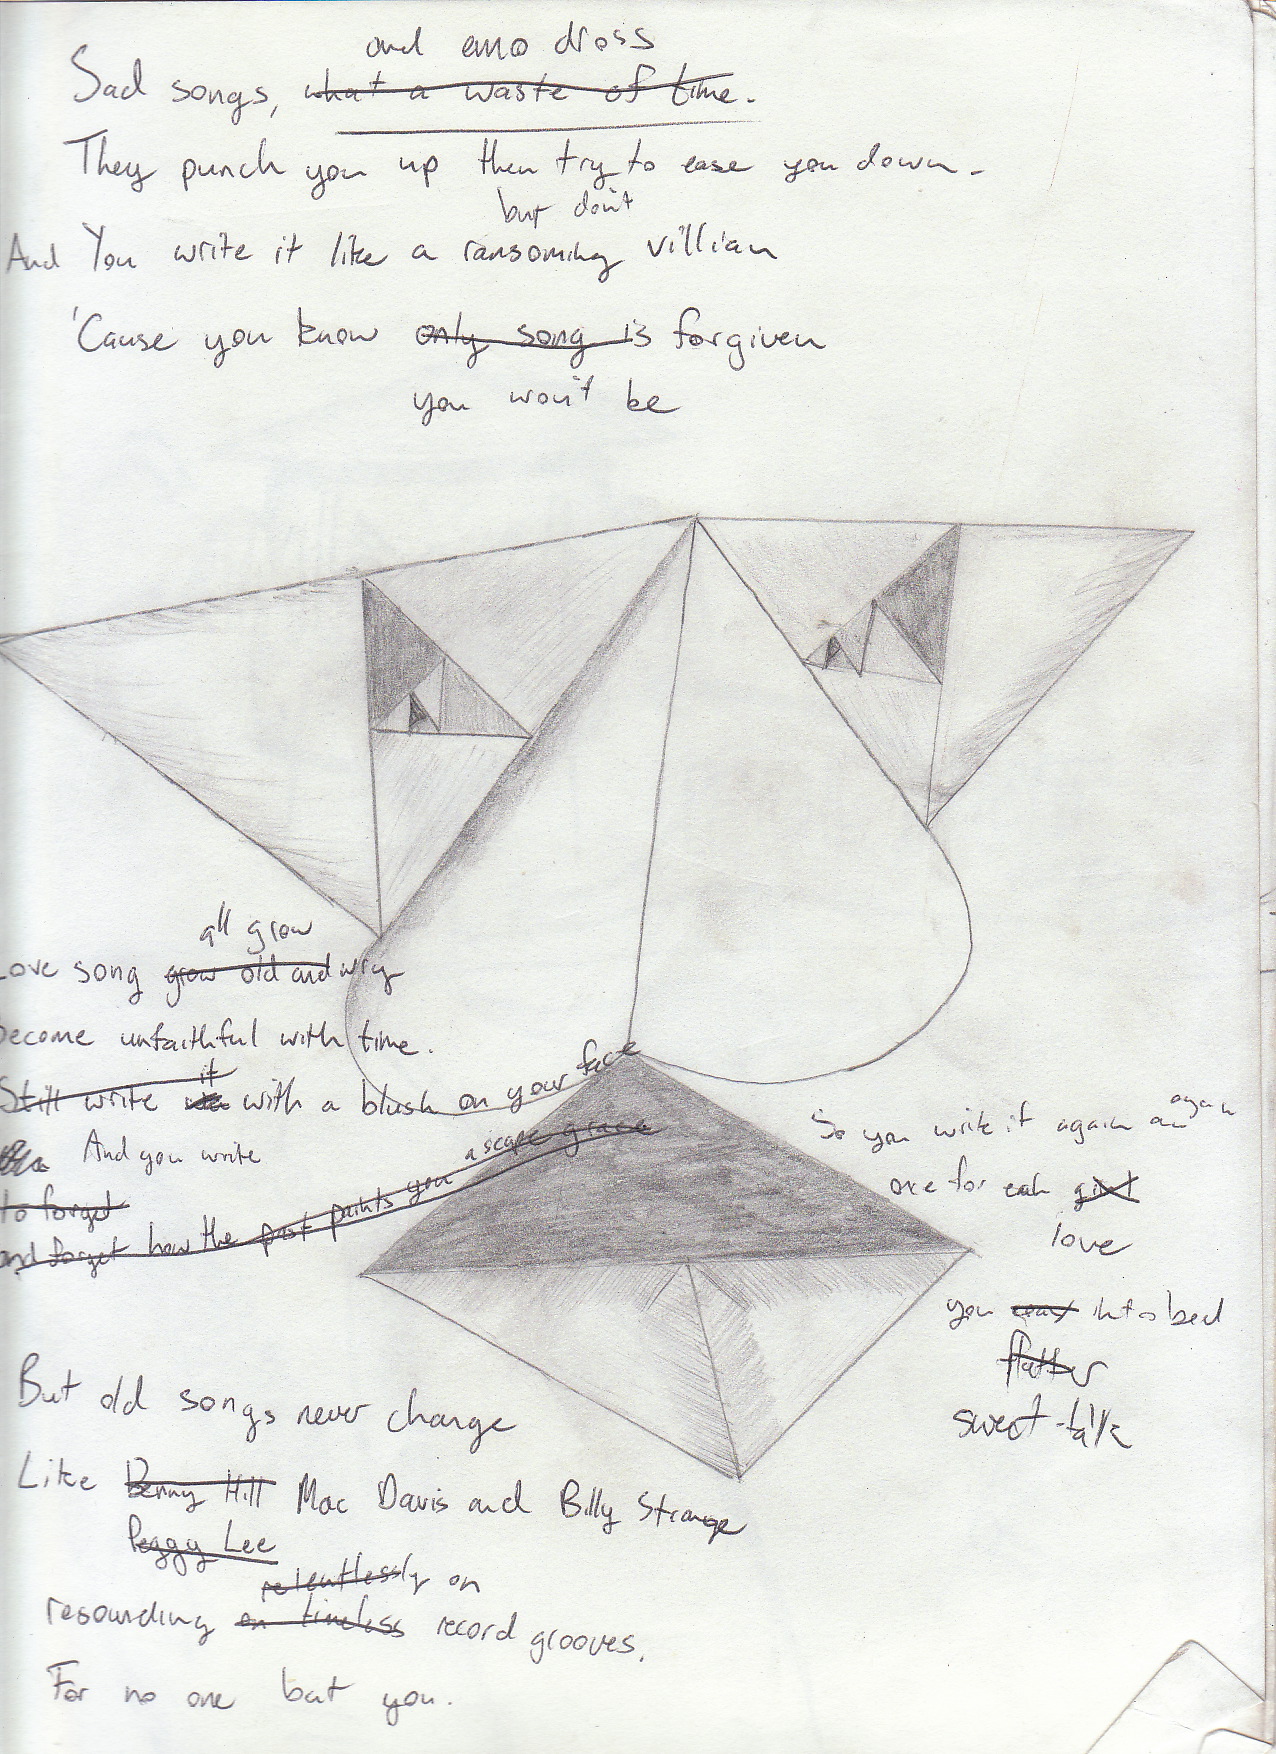 and emo dross
Sad songs, what a waste of time.
They punch you up then try to ease you down.
but don't
And You write it like a ransoming villian
'Cause you know only song is forgiven
you won't be
all grow
Love song grow old and wry
become unfaithful with time.
it
Still write with a blush on your face
And you write
to forget
and forget how the past paints you a scape grace
So you write it again an again
one for each girl
love
you into bed
flatter
sweet-talk
But old songs never change
Like Benny Hill Mac Davis and Billy Strange
Peggy Lee
relentlessly on
resounding on timeless record grooves.
For no one but you.